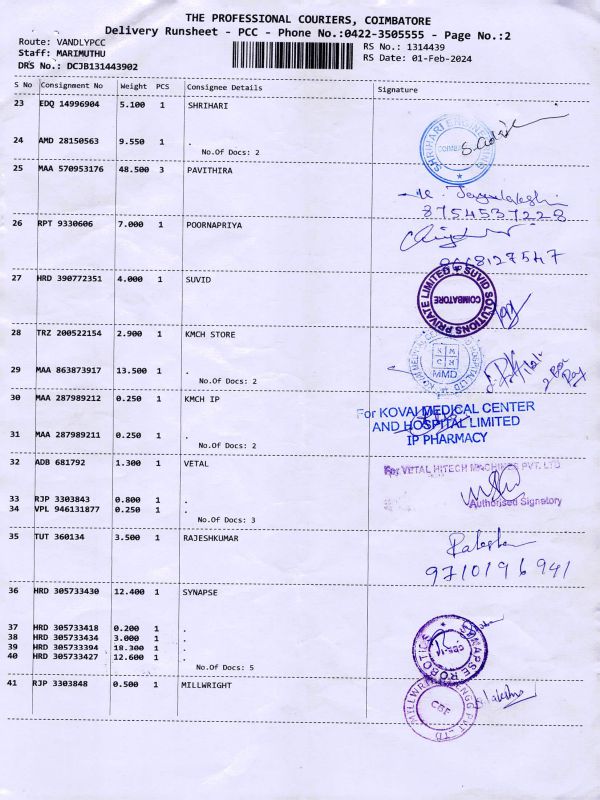 THE PROFESSIONAL COURIERS, COIMBATORE
Delivery Runsheet - PCC - Phone No.:0422-3505555 - Page No.:2
Route: VANDLYPCC
RS No.: 1314439
Staff: MARIMUTHU
RS Date: 01-Feb-2024
DRS No.: DCJB131443902
S No Consignment No Weight PCS Consignee Details Signature
23 EDQ 14996904 5.100 1 SHRIHARI
SHRIHARI ENGINEERING
COIMBATORE
24 AMD 28150563 9.550 1 .
No.Of Docs: 2
25 MAA 570953176 48.500 3 PAVITHIRA
8754537228
26 RPT 9330606 7.000 1 POORNAPRIYA
27 HRD 390772351 4.000 1 SUVID
SUVID SOLUTIONS PRIVATE LIMITED
COIMBATORE
28 TRZ 200522154 2.900 1 KMCH STORE
KMCH
MMD
29 MAA 863873917 13.500 1 .
No.Of Docs: 2
30 MAA 287989212 0.250 1 KMCH IP
For KOVAI MEDICAL CENTER
AND HOSPITAL LIMITED
IP PHARMACY
31 MAA 287989211 0.250 1 .
No.Of Docs: 2
32 ADB 681792 1.300 1 VETAL
For VETAL HITECH MACHINES PVT. LTD
33 RJP 3303843 0.800 1 .
Authorised Signatory
34 VPL 946131877 0.250 1 .
No.Of Docs: 3
35 TUT 360134 3.500 1 RAJESHKUMAR
9710196941
36 HRD 305733430 12.400 1 SYNAPSE
37 HRD 305733418 0.200 1 .
38 HRD 305733434 3.000 1 .
39 HRD 305733394 18.300 1 .
40 HRD 305733427 12.600 1 .
SYNAPSE ROBOTICS
No.Of Docs: 5
41 RJP 3303848 0.500 1 MILLWRIGHT
CBE